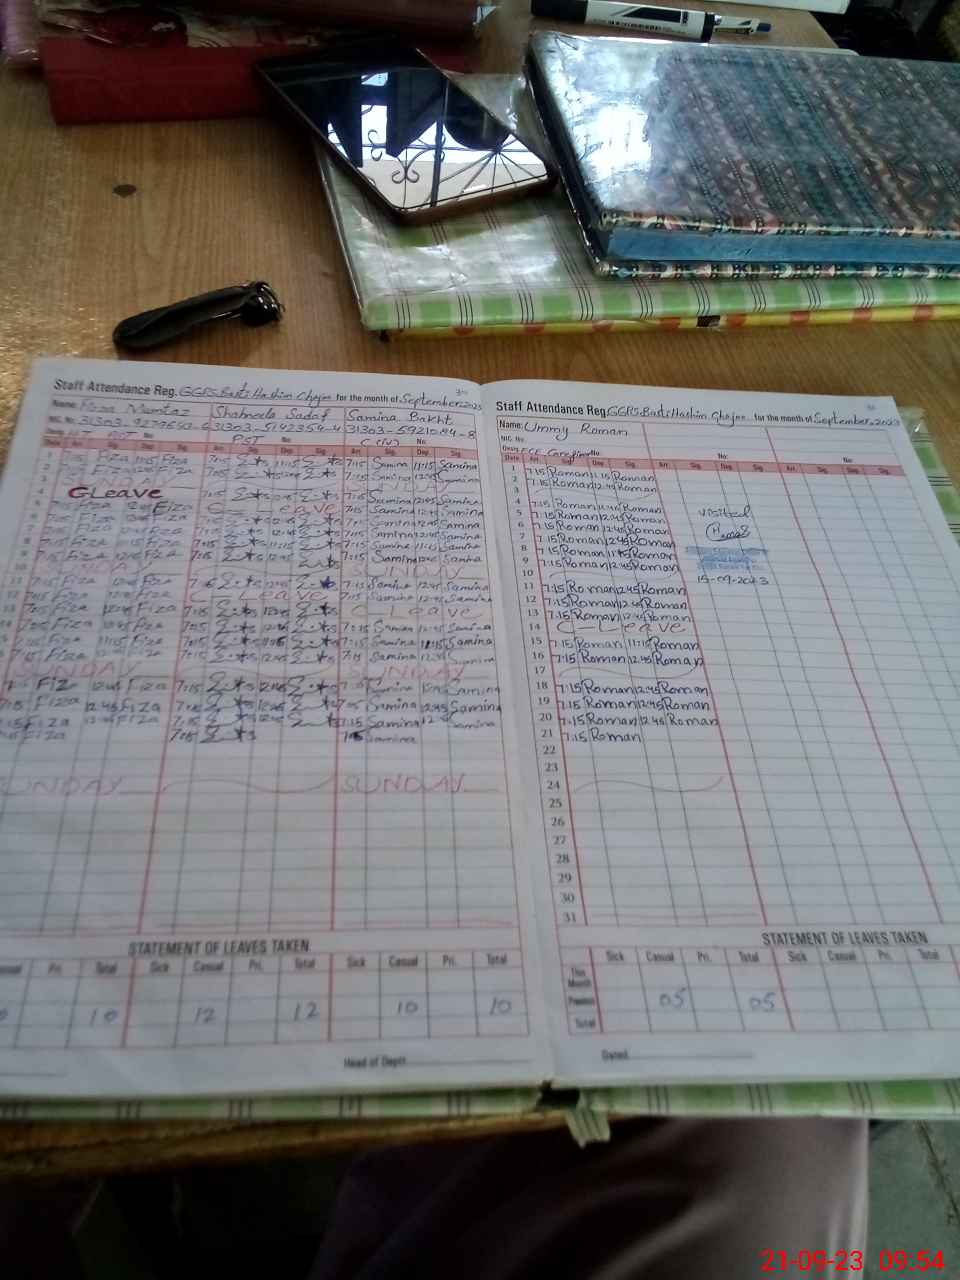 Staff Attendance Reg. GGPS.Basti Hashim for the month of September,2023
Name: Fiza Mumtaz Shahneela Sadaf Samina Bakht
NIC. No. 31303-5142354-4 31303-5921084-8
PST No. No.
Date Arr. Sig. Dep. Sig. Arr. Sig. Dep. Sig. Arr. Sig. Dep. Sig.
1 Fiza 11:15 Fiza 7:15 11:15 7:15 Samina 11:15 Samina
2 Fiza 12:45 Fiza 7:15 Samina 12:45 Samina
3 SUNDAY
4 C Leave 7:15 12:45 7:15 Samina 12:45 Samina
Fiza 12:45 Fiza C Leave 7:15 Samina 12:45 Samina
Fiza 12:45 Fiza 7:15 Samina 12:45 Samina
Fiza 12:45 Fiza 7:15 Samina 12:45 Samina
Fiza 11:15 Fiza 7:15 11:15 7:15 Samina 11:15 Samina
Fiza 12:45 Fiza 7:15 12:45 7:15 Samina 12:45 Samina
10 SUNDAY SUNDAY
11 7:15 Fiza 12:45 Fiza 7:15 12:45 7:15 Samina 12:45 Samina
12 7:15 Fiza 12:45 Fiza C Leave 7:15 Samina 12:45 Samina
13 7:15 Fiza 12:45 Fiza 7:15 12:45 C Leave
7:15 Fiza 12:45 Fiza 7:15 12:45 7:15 Samina 12:45 Samina
7:15 Fiza 11:15 Fiza 7:15 7:15 Samina 11:15 Samina
7:15 Fiza 12:45 Fiza 7:15 12:45 7:15 Samina 12:45 Samina
SUNDAY SUNDAY
Fiza 12:45 Fiza 7:15 12:45 7:15 Samina 12:45 Samina
7:15 Fiza 12:45 Fiza 7:15 12:45 7:15 Samina 12:45 Samina
7:15 Fiza 12:45 Fiza 7:15 12:45 7:15 Samina 12:45 Samina
7:15 Fiza 7:15 7:15 Samina
SUNDAY SUNDAY
STATEMENT OF LEAVES TAKEN
Casual Pri. Total Sick Casual Pri. Total Sick Casual Pri. Total
10 12 12 10 10
Head of Deptt.
Staff Attendance Reg. GGPS.Basti Hashim for the month of September,2023
Name: Ummy Roman
NIC. No.
Desig. ECE Caregiver No. No: No:
Date Arr. Sig. Dep. Sig. Arr. Sig. Dep. Sig. Arr. Sig. Dep. Sig.
1 7:15 Roman 11:15 Roman
2 7:15 Roman 12:45 Roman
3
4 7:15 Roman 12:45 Roman
5 7:15 Roman 12:45 Roman visited
6 7:15 Roman 12:45 Roman
7 7:15 Roman 12:45 Roman
8 7:15 Roman 11:15 Roman
9 7:15 Roman 12:45 Roman
10 15-09-2023
11 7:15 Roman 12:45 Roman
12 7:15 Roman 12:45 Roman
13 7:15 Roman 12:45 Roman
14 C Leave
15 7:15 Roman 11:15 Roman
16 7:15 Roman 12:45 Roman
17
18 7:15 Roman 12:45 Roman
19 7:15 Roman 12:45 Roman
20 7:15 Roman 12:45 Roman
21 7:15 Roman
22
23
24
25
26
27
28
29
30
31
STATEMENT OF LEAVES TAKEN
Sick Casual Pri. Total Sick Casual Pri. Total
This Month
Previous 05 05
Total
Dated
21-09-23 09:54